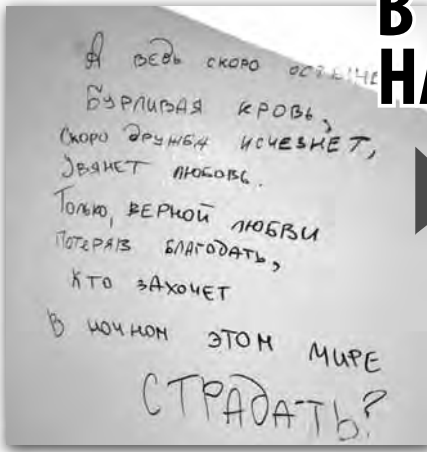 В
НА
А ведь скоро
Бурливая кровь,
Скоро дружба исчезнет,
Увянет любовь.
Только, верной любви
Потеряв благодать,
Кто захочет
В ночном этом мире
СТРАДАТЬ?